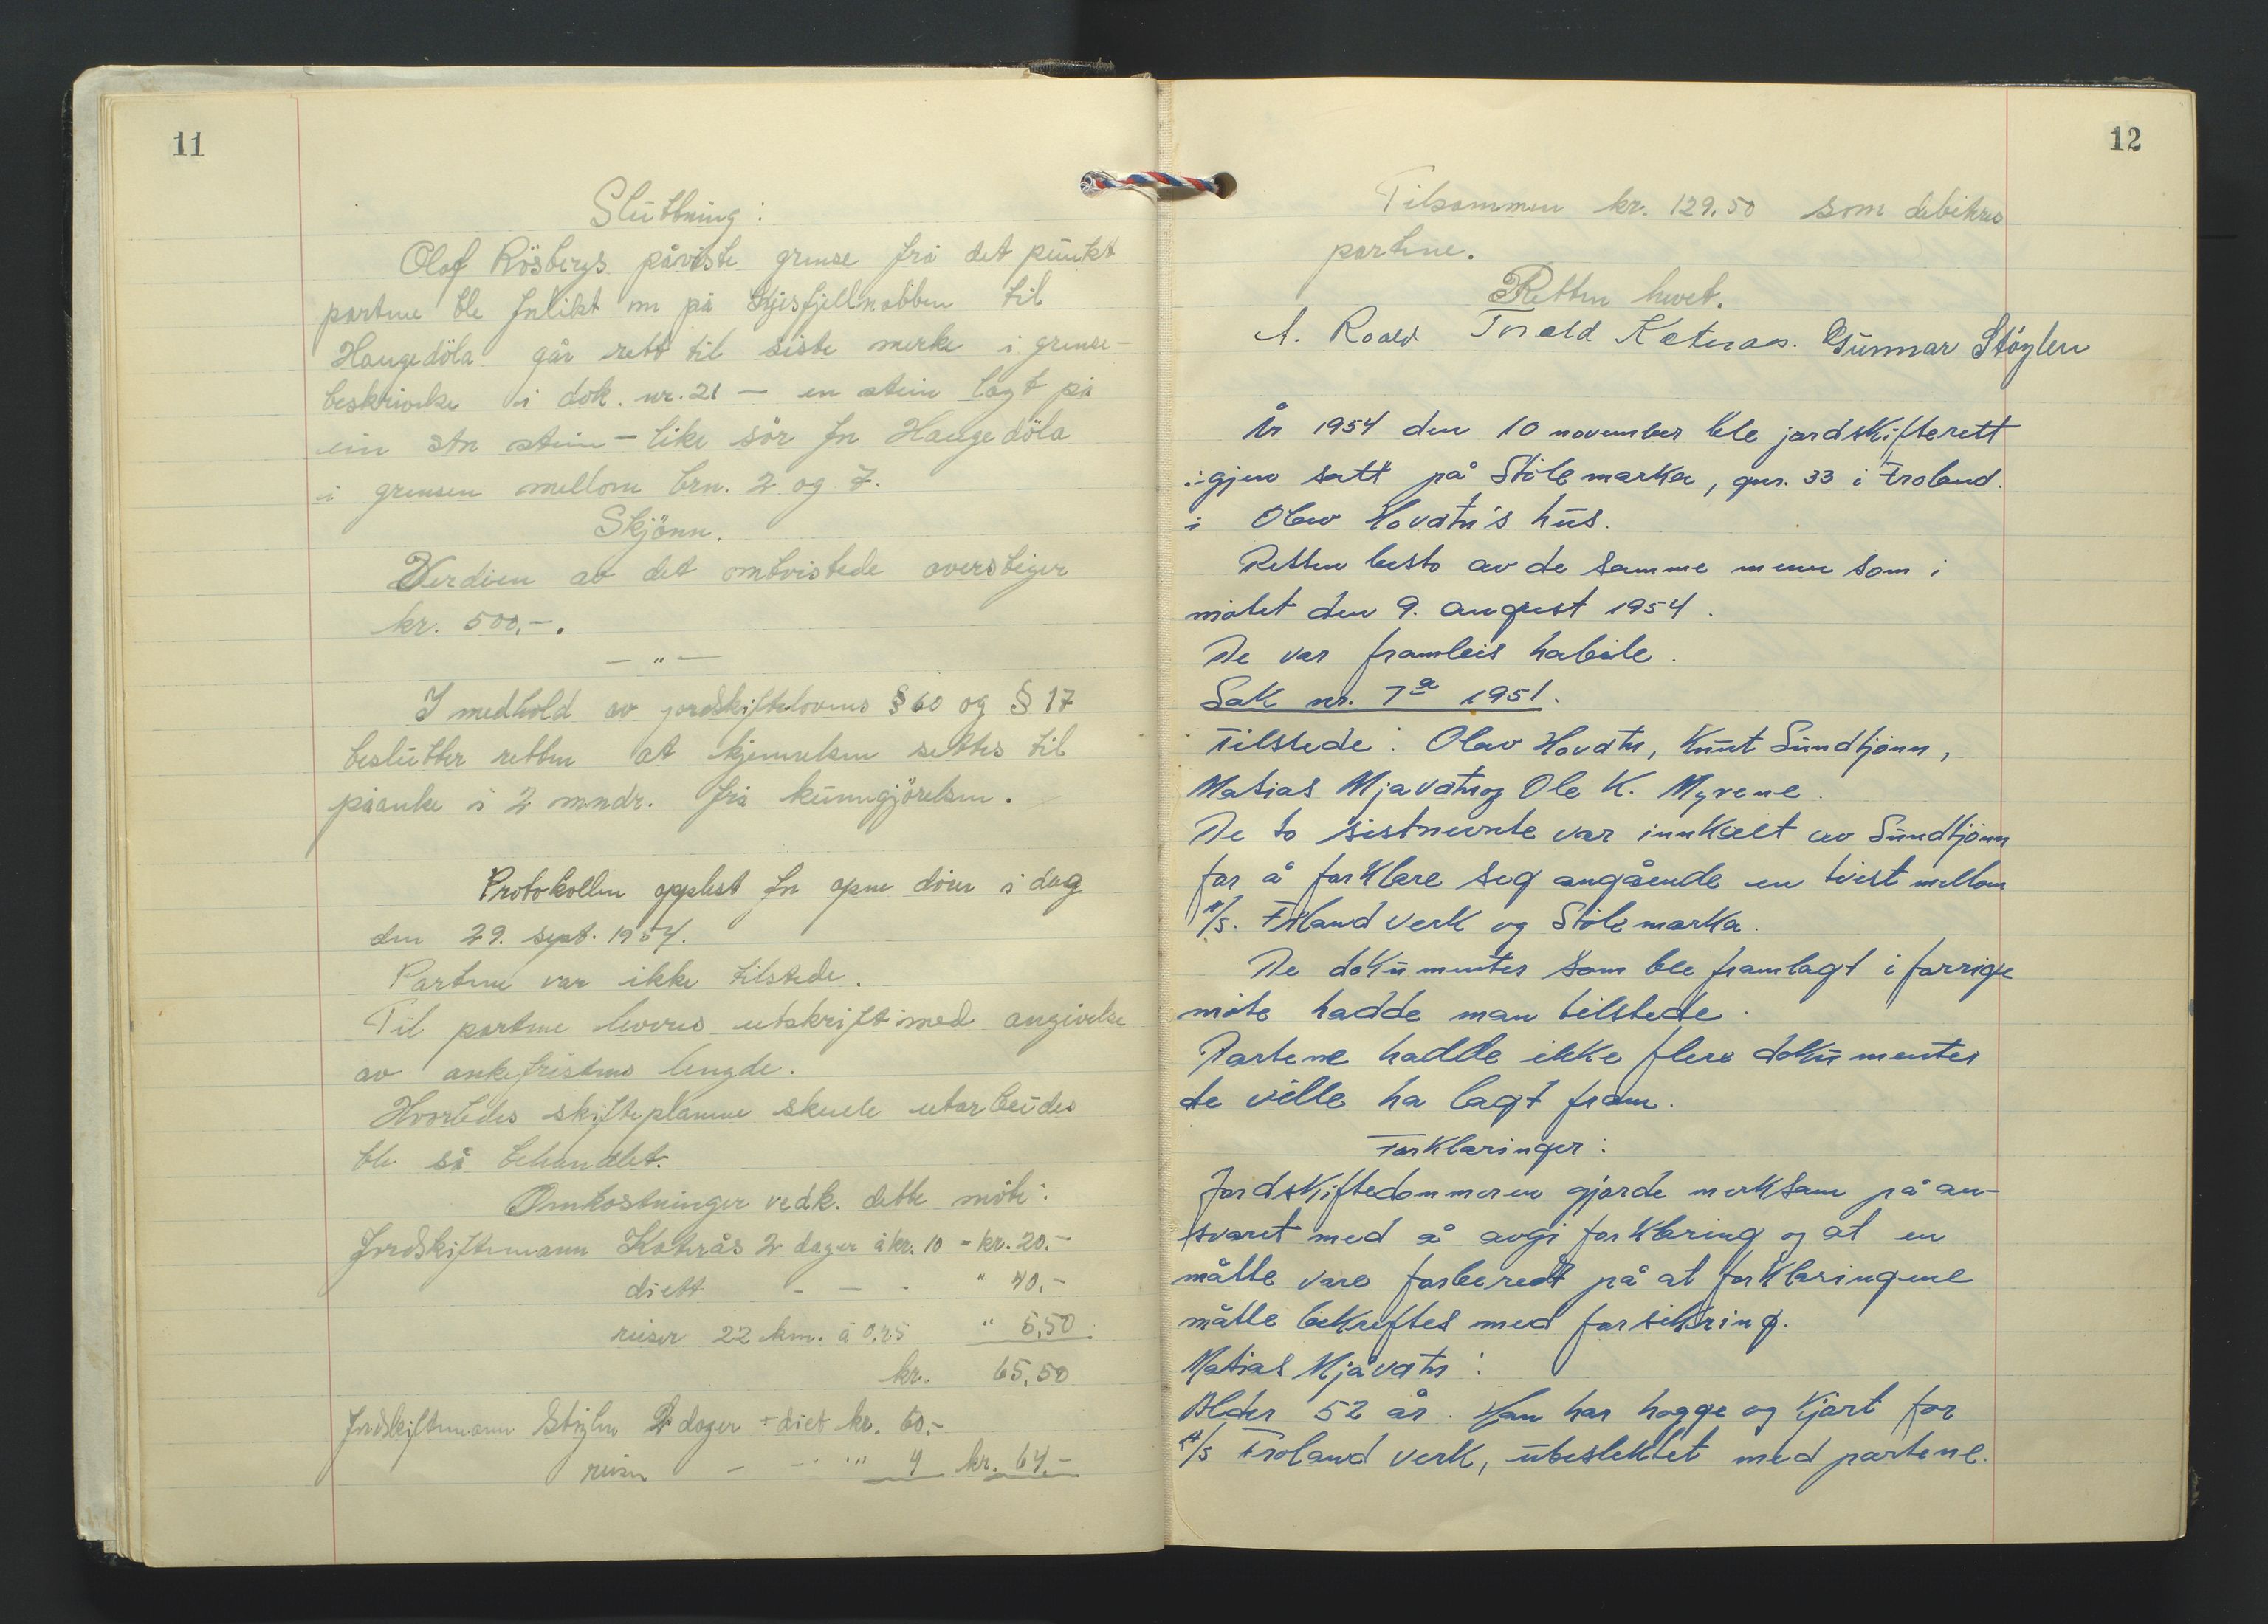 11
Slutning:
Olaf Rösbergs påviste grense frå det punkt
partene ble forlikt om på Gjesfjellnabben til
Haugedöla går rett til siste merke i grense-
beskrivelse i dok. nr. 21 – en stein lagt på
ein stor stein – like sör for Haugedöla
i grensen mellom brn. 2 og 7.
Skjönn.
Verdien av det omtvistede overstiger
kr. 500,-.
— " —
I medhold av jordskiftelovens § 60 og § 17
beslutter retten at kjennelsen settes til
påanke i 2 mndr. frå kunngjörelsen.
Protokollen opplest for opne dörer i dag
den 29. sept. 1954.
Partene var ikke tilstede.
Til partene leveres utskrift med angivelse
av ankefristens lengde.
Hvorledes skifteplanene skulle utarbeides
ble så behandlet.
Omkostninger vedk. dette möte:
Jordskiftemann Katerås 2 dager à kr. 10 = kr. 20.-
diett - — - " 40.-
reiser 22 km. à 0,25 " 5,50
kr. 65,50
Jordskiftemann Stöylen 2 dager + diet kr. 60.-
reiser - - " 4 kr. 64.-
12
Tilsammen kr. 129,50 som debiteres
partene.
Retten hevet.
A. Roald Torald Kateraas. Gunnar Støylen
År 1954 den 10 november ble jordskifterett
igjen satt på Stölemarka, gnr. 33 i Froland.
i Olav Hovatn's hus.
Retten besto av de samme menn som i
mötet den 9. august 1954.
De var framleis habile.
Sak nr. 7a 1951.
Tilstede: Olav Hovatn, Knut Sundtjönn,
Matias Mjavatn og Ole K. Myrene.
De to sistnevnte var innkalt av Sundtjönn
for å forklare seg angående en tvist mellom
A/S. Froland Verk og Stölemarka.
De dokumenter som ble framlagt i forrige
möte hadde man tilstede.
Partene hadde ikke flere dokumenter
de ville ha lagt fram.
Forklaringer:
Jordskiftedommeren gjorde merksam på an-
svaret med å avgi forklaring og at en
måtte være forberedt på at forklaringene
måtte bekreftes med forsikring.
Matias Mjåvatn:
Alder 52 år. Han har hogge og kjört for
A/S Froland Verk, ubeslektet med partene.